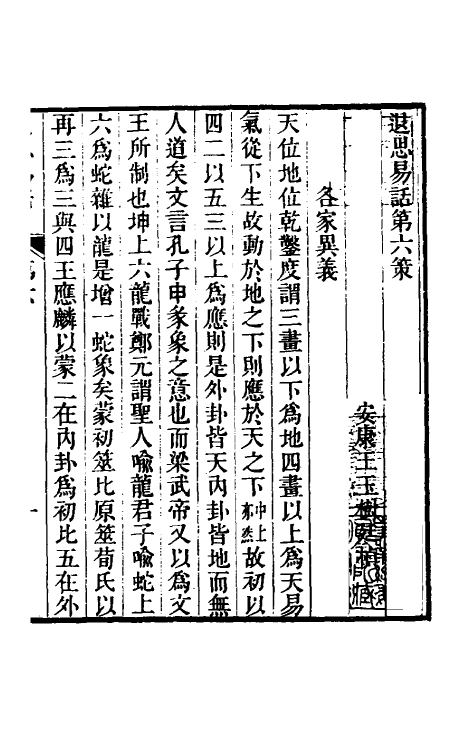 退思易話第六策
安康王玉樹
各家異義
天位地位乾鑿度謂三畫以下爲地四畫以上爲天易
氣從下生故動於地之下則應於天之下中上亦然故初以
四二以五三以上爲應則是外卦皆天內卦皆地而無
人道矣文言孔子申彖象之意也而梁武帝又以爲文
王所制也坤上六龍戰鄭元謂聖人喻龍君子喻蛇上
六爲蛇雜以龍是增一蛇象矣蒙初筮比原筮荀氏以
再三爲三與四王應麟以蒙二在內卦爲初比五在外